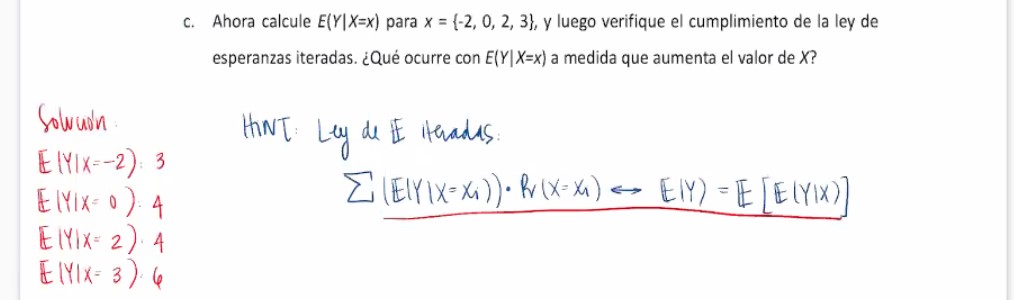 c. Ahora calcule E(Y|X=x) para x = {-2, 0, 2, 3}, y luego verifique el cumplimiento de la ley de
esperanzas iteradas. ¿Qué ocurre con E(Y|X=x) a medida que aumenta el valor de X?
Solución:
E(Y|X=-2): 3
E(Y|X=0): 4
E(Y|X=2): 4
E(Y|X=3): 6
HINT: Ley de E iteradas:
∑(E(Y|X=Xi))·Pr(X=Xi) ↔ E(Y) = E[E(Y|X)]